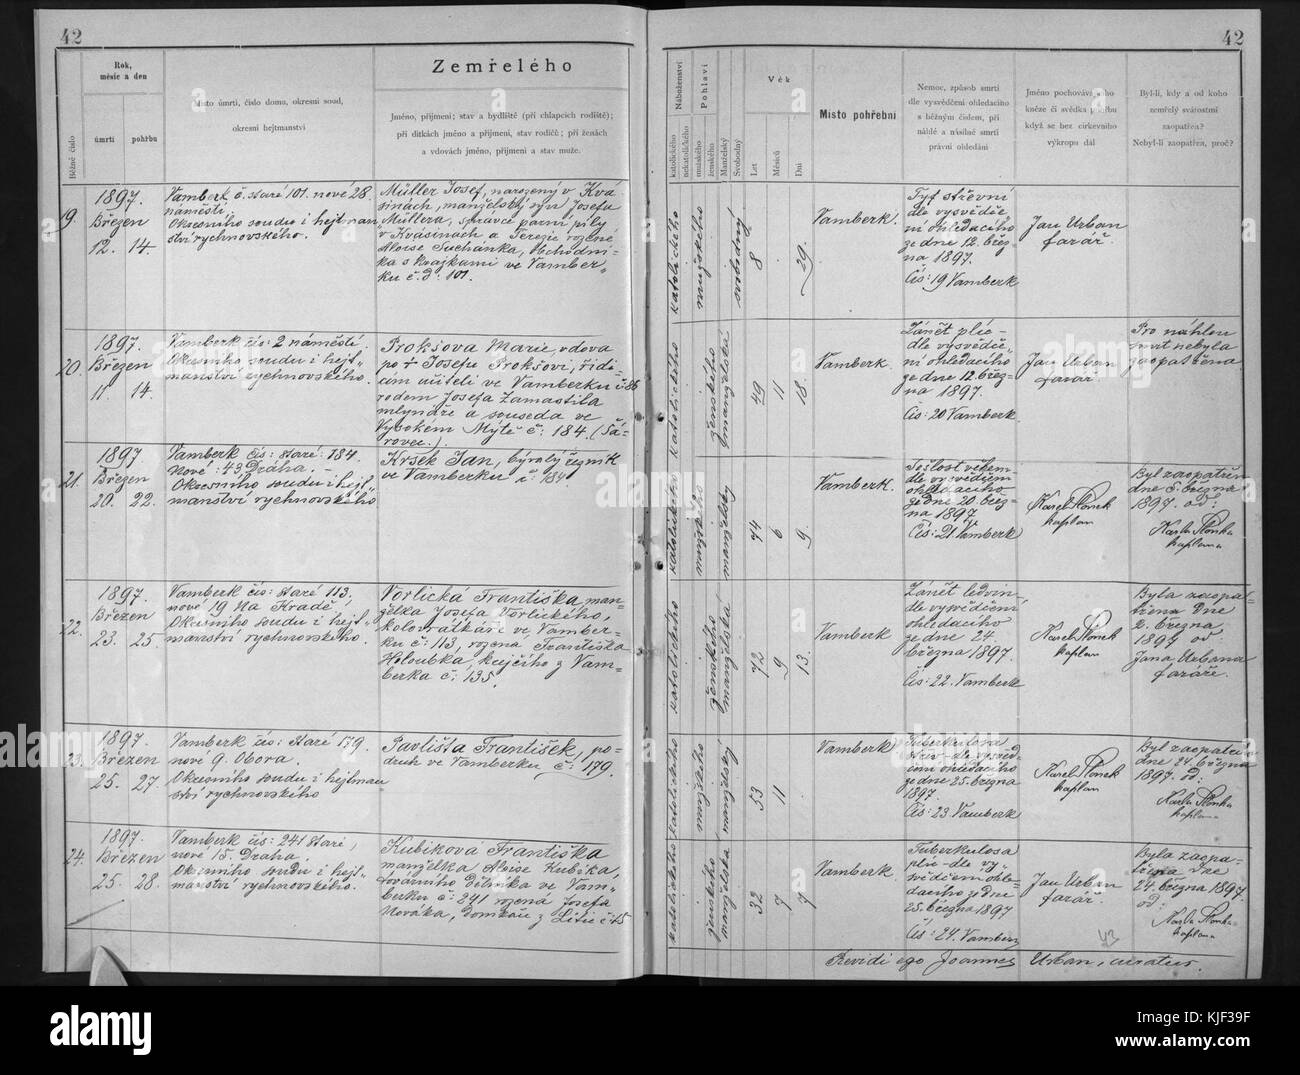 42
42
Rok,
měsíc a den
úmrtí
pohřbu
Běžné číslo
Místo úmrtí, číslo domu, okresní soud,
okresní hejtmanství
Zemřelého
Jméno, příjmení; stav a bydliště (při chlapcích rodiště);
při dítkách jméno a příjmení, stav rodičů; při ženách
a vdovách jméno, příjmení a stav muže.
Náboženství
katolického
nekatolického
Pohlaví
mužského
ženského
Manželský
Svobodný
Věk
Let
Měsíců
Dní
Místo pohřební
Nemoc, způsob smrti
dle vysvědčení ohledacího
s běžným číslem, při
náhlé a násilné smrti
právní ohledání
Jméno pochovávajícího
kněze či svědka pohřbu
když se bez církevního
výkropu dál
Byl-li, kdy a od koho
zemřelý svátostmi
zaopatřen?
Nebyl-li zaopatřen, proč?
19.
1897.
Březen
12. 14.
Vamberk č. staré 101. nové 28.
náměstí.
Okresního soudu i hejtman
ství rychnovského.
Müller Josef, narozený v Kva-
sinách, manželský syn Josefa
Müllera, správce parní pily
v Kvasinách a Terezie rozené
Aloise Suchánka, obchodní-
ka s krajkami ve Vamber-
ku č. d. 101.
katolického
mužského
svobodný
8
29
Vamberk.
Tyf střevní
dle vysvědče-
ní ohledacího
ze dne 12. břez-
na 1897.
Čís: 19 Vamberk
Jan Urban
farář.
20.
1897.
Březen
11. 14.
Vamberk čís: 2 náměstí.
Okresního soudu i hejt-
manství rychnovského.
Prokšova Marie, vdova
po † Josefu Prokšovi, řídí-
cím učiteli ve Vamberku č. 86
rodem Josefa Zamastila
mlynáře a souseda ve
Vysokém Mýtě č: 184. (Šá-
rovec.)
katolického
ženského
manželská
49
11
18
Vamberk
Zánět plic-
dle vysvědče-
ní ohledacího
ze dne 12. břez-
na 1897.
Čís: 20 Vamberk
Jan Urban
farář.
Pro náhlou
smrt nebyla
zaopatřena
21.
1897
Březen
20. 22.
Vamberk čís: staré: 184.
Nové: 43 Dráha.
Okresního soudu i hejt-
manství rychnovského
Kršek Jan, bývalý řezník
ve Vamberku č 184
katolického
mužského
manželský
74
6
9.
Vamberk.
Sešlost věkem
dle vysvědčení
ohledacího
ze dne 20. břez-
na 1897
Čís: 21. Vamberk
Karel Slonek
kaplan
Byl zaopatřen
dne 8. března
1897. od:
Karla Slonka
kaplana
22.
1897.
Březen
23. 25.
Vamberk čís: staré 113,
nové 19 Na Hradě,
Okresního soudu i hejt-
manství rychnovského.
Vorlická Františka man-
želka Josefa Vorlického,
kolovrátkáře ve Vamber-
ku č: 113, rozená Františka
Holoubka, krejčího z Vam-
berka č. 135.
katolického
ženského
manželská
72
9
13.
Vamberk
Zánět ledvin-
dle vysvědčení
ohledacího
ze dne 24.
března 1897.
Čís: 22. Vamberk
Karel Slonek
kaplan
Byla zaopat-
řena dne
2. března
1897 od
Jana Urbana
faráře.
23.
1897.
Březen
25. 27.
Vamberk čís: staré 179.
nové 9. Obora.
Okresního soudu i hejtman
ství rychnovského
Pavlišta František, po-
druh ve Vamberku č. 179.
katolického
mužského
manželský
53
11
Vamberk
Tuberkulosa
střev - dle vysvěd-
čení ohledacího
ze dne 25. března
1897.
Čís: 23. Vamberk
Karel Slonek
kaplan
Byl zaopatřen
dne 24. března
1897. od:
Karla Slonka
kaplana
24.
1897.
Březen
25. 28.
Vamberk čís: 241 staré,
nové 15. Dráha.
Okresního soudu i hejt-
manství rychnovského.
Kubíkova Františka
manželka Aloise Kubíka,
továrního dělníka ve Vam-
berku č: 241 rozená Josefa
Nováka, domkáře z Litic č. 15
katolického
ženského
manželská
32
7
7
Vamberk
Tuberkulosa
plic - dle vy-
svědčení ohle-
dacího ze dne
25. března 1897
Čís: 24. Vamberk
Jan Urban
farář.
Byla zaopa-
třena dne
24. března 1897.
od:
Karla Slonka
kaplana
43
Revidi ego Joannes Urban, curatus.
alamy
KJF39F
www.alamy.com